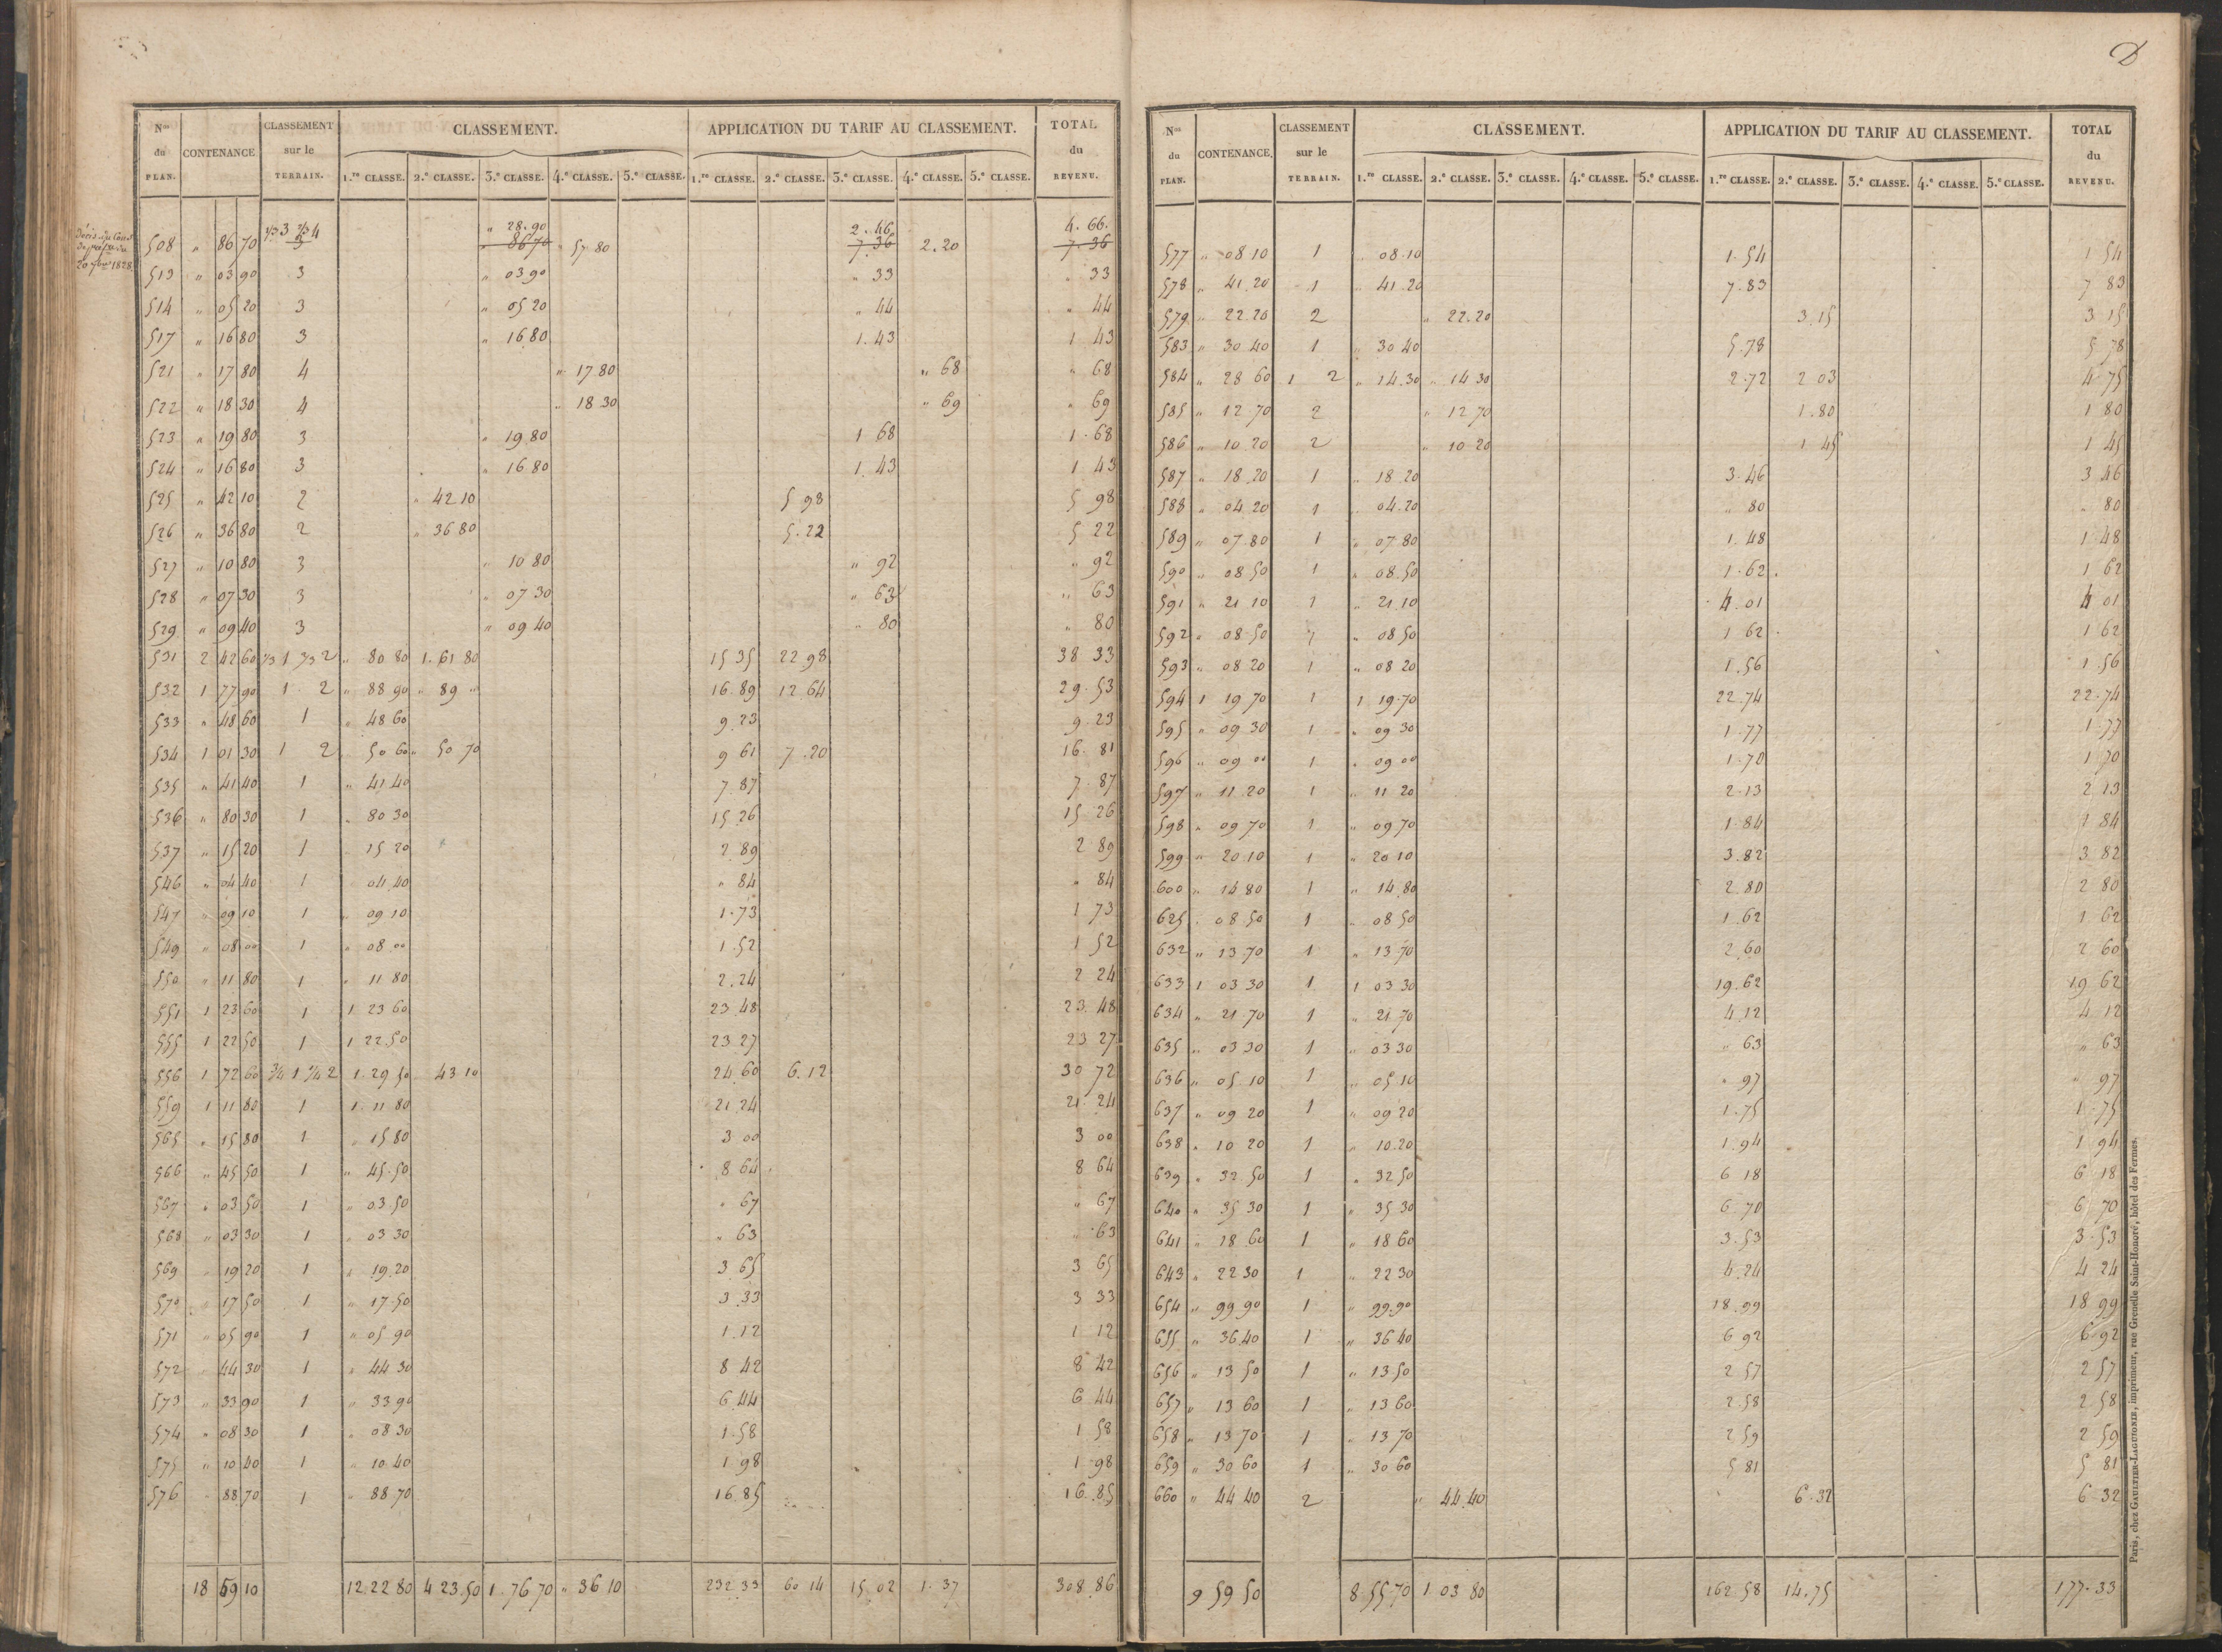 D
Nos du PLAN. CONTENANCE CLASSEMENT sur le TERRAIN. CLASSEMENT. APPLICATION DU TARIF AU CLASSEMENT. TOTAL du REVENU.
1.re CLASSE. 2.e CLASSE. 3.e CLASSE. 4.e CLASSE. 5.e CLASSE. 1.re CLASSE. 2.e CLASSE. 3.e CLASSE. 4.e CLASSE. 5.e CLASSE.
1/3 3 2/3 4 " 28.90 2.46 4.66.
508 " 86 70 3 " 86 70 " 57 80 7.36 2.20 7.36
20 1828
513 " 03 90 3 " 03 90 " 33 " 33
514 " 05 20 3 " 05 20 " 44 " 44
517 " 16 80 3 " 16 80 1.43 1 43
521 " 17 80 4 " 17 80 " 68 " 68
522 " 18 30 4 " 18 30 " 69 " 69
523 " 19 80 3 " 19 80 1 68 1.68
524 " 16 80 3 " 16 80 1.43 1 43
525 " 42 10 2 " 42 10 5 98 5 98
526 " 36 80 2 " 36 80 5.22 5 22
527 " 10 80 3 " 10 80 " 92 " 92
528 " 07 30 3 " 07 30 " 63 " 63
529 " 09 40 3 " 09 40 " 80 " 80
531 2 42 60 1/3 1 2/3 2 " 80 80 1.61 80 15 35 22 98 38 33
532 1 77 90 1 2 " 88 90 " 89 " 16.89 12 64 29.53
533 " 48 60 1 " 48 60 9.23 9.23
534 1 01 30 1 2 " 50 60 " 50 70 9 61 7.20 16.81
535 " 41 40 1 " 41 40 7.87 7.87
536 " 80 30 1 " 80 30 15.26 15 26
537 " 15 20 1 " 15 20 2.89 2 89
546 " 04 40 1 04 40 " 84 " 84
547 " 09 10 1 " 09 10 1.73 1 73
549 " 08 00 1 " 08 00 1.52 1 52
550 " 11 80 1 " 11 80 2.24 2 24
551 1 23 60 1 1 23 60 23 48 23.48
555 1 22 50 1 1 22 50 23 27 23 27
556 1 72 60 3/4 1 1/4 2 1.29 50 43 10 24.60 6.12 30 72
559 1 11 80 1 1.11 80 21.24 21 24
565 " 15 80 1 " 15 80 3 00 3 00
566 " 45 50 1 " 45.50 8 64 8 64
567 " 03 50 1 " 03.50 " 67 " 67
568 " 03 30 1 " 03 30 " 63 " 63
569 " 19 20 1 " 19.20 3.65 3 65
570 " 17 50 1 " 17.50 3.33 3 33
571 " 05 90 1 " 05 90 1.12 1 12
572 " 44 30 1 " 44 30 8 42 8 42
573 " 33 90 1 " 33 90 6.44 6 44
574 " 08 30 1 " 08 30 1.58 1 58
575 " 10 40 1 " 10 40 1 98 1 98
576 " 88 70 1 " 88.70 16.85 16.85
18 59 10 12.22 80 4 23.50 1.76 70 " 36 10 232 33 60 14 15.02 1.37 308.86
Nos du PLAN. CONTENANCE. CLASSEMENT sur le TERRAIN. CLASSEMENT. APPLICATION DU TARIF AU CLASSEMENT. TOTAL du REVENU.
1.re CLASSE. 2.e CLASSE. 3.e CLASSE. 4.e CLASSE. 5.e CLASSE. 1.re CLASSE. 2.e CLASSE. 3.e CLASSE. 4.e CLASSE. 5.e CLASSE.
577 " 08 10 1 " 08.10 1.54 1 54
578 " 41.20 1 " 41.20 7.83 7 83
579 " 22 20 2 " 22.20 3.15 3 15
583 " 30 40 1 " 30 40 5.78 5 78
584 " 28 60 1 2 " 14.30 " 14 30 2.72 2 03 4 75
585 " 12 70 2 " 12 70 1.80 1 80
586 " 10 20 2 " 10 20 1 45 1 45
587 " 18.20 1 " 18 20 3.46 3 46
588 " 04.20 1 " 04.20 " 80 " 80
589 " 07 80 1 " 07 80 1.48 1 48
590 " 08 50 1 " 08.50 1.62 1 62
591 " 21 10 1 " 21.10 4.01 4 01
592 " 08 50 1 " 08 50 1 62 1 62
593 " 08 20 1 " 08 20 1.56 1.56
594 1 19 70 1 1 19.70 22.74 22.74
595 " 09 30 1 " 09 30 1.77 1 77
596 " 09 00 1 " 09 00 1.70 1 70
597 " 11.20 1 " 11 20 2.13 2 13
598 " 09 70 1 " 09 70 1.84 1 84
599 " 20.10 1 " 20 10 3.82 3 82
600 " 14 80 1 " 14.80 2.80 2 80
625 " 08.50 1 " 08 50 1.62 1 62
632 " 13.70 1 " 13.70 2.60 2 60
633 1 03 30 1 1 03 30 19.62 19 62
634 " 21 70 1 " 21.70 4.12 4 12
635 " 03 30 1 " 03 30 " 63 " 63
636 " 05 10 1 " 05 10 " 97 " 97
637 " 09 20 1 " 09 20 1.75 1.75
638 " 10 20 1 " 10.20 1.94 1 94
639 " 32 50 1 " 32 50 6 18 6 18
640 " 35 30 1 " 35 30 6 70 6 70
641 " 18 60 1 " 18 60 3.53 3.53
643 " 22 30 1 " 22 30 4.24 4 24
654 " 99 90 1 " 99.90 18.99 18 99
655 " 36.40 1 " 36 40 6 92 6 92
656 " 13 50 1 " 13.50 2 57 2 57
657 " 13 60 1 " 13 60 2.58 2.58
658 " 13 70 1 " 13 70 2.59 2 59
659 " 30 60 1 " 30 60 5 81 5 81
660 " 44 40 2 " 44.40 6.32 6 32
9 59 50 8.55 70 1 03 80 162.58 14.75 177.33
Paris, chez GAULTIER-LAGUIONIE, imprimeur, rue Grenelle Saint-Honoré, hôtel des Fermes.